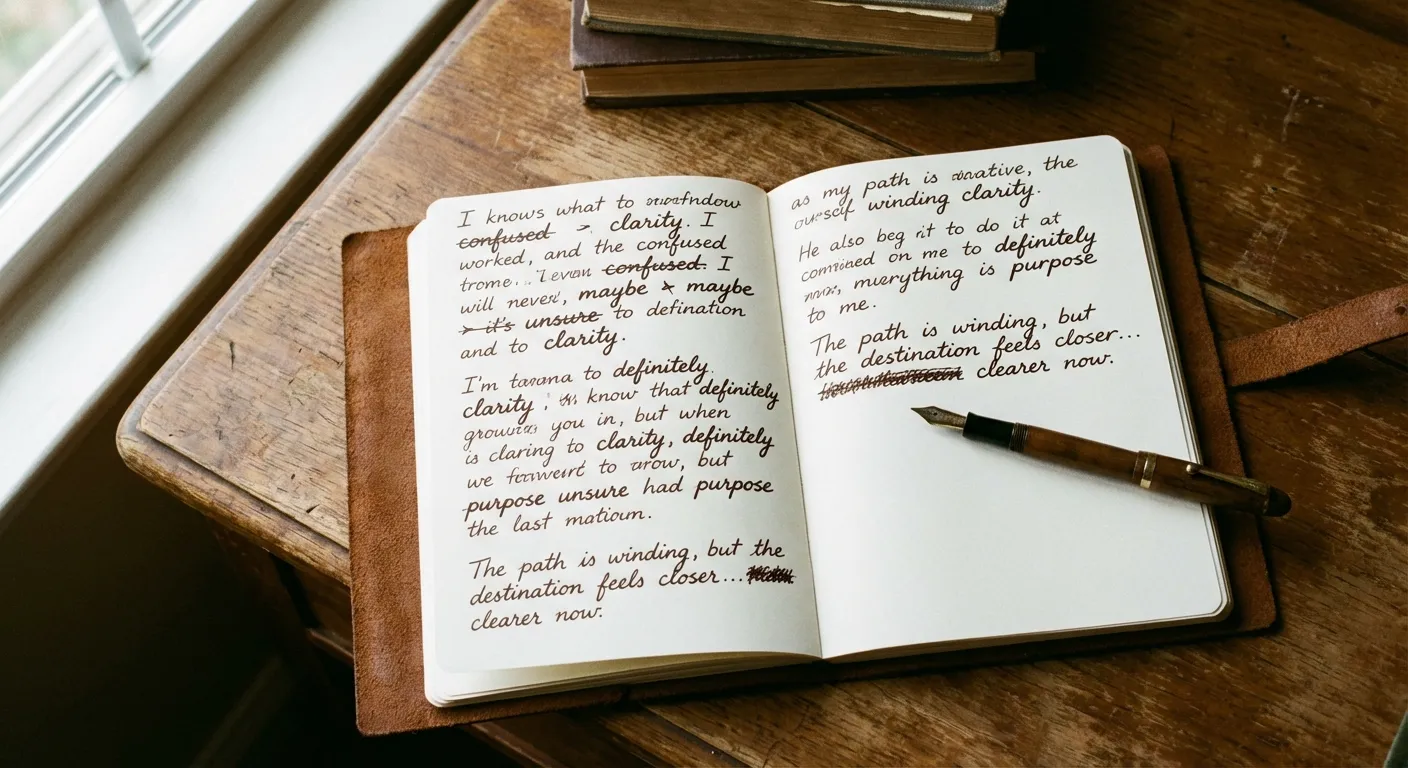 I knows what to
confused clarity. I
worked, and the confused
trome... confused. I
will never, maybe x maybe
it's unsure to defination
and to clarity.
I'm tarama to definitely.
clarity, know that definitely
you in, but when
is claring to clarity, definitely
we to arow, but
purpose unsure had purpose
the last matioum.
The path is winding, but the
destination feels closer...
clearer now.
as my path is doative, the
winding clarity.
He also beg it to do it at
comined on me to definitely
muerything is purpose
to me.
The path is winding, but
the destination feels closer...
clearer now.